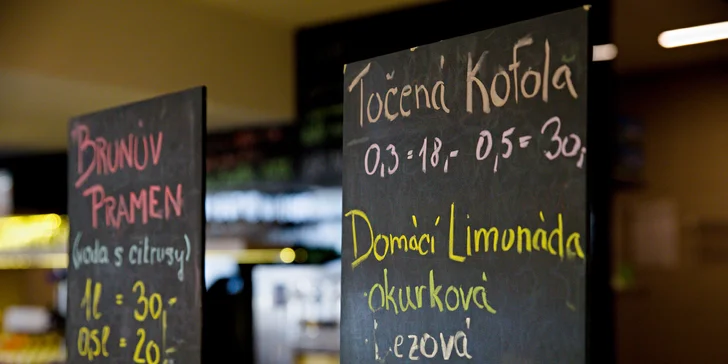 BRUNŮV
PRAMEN
(voda s citrusy)
1l = 30,-
0,5l = 20,-
Točená Kofola
0,3 = 18,- 0,5 = 30,-
Domácí Limonáda
okurková
bezová